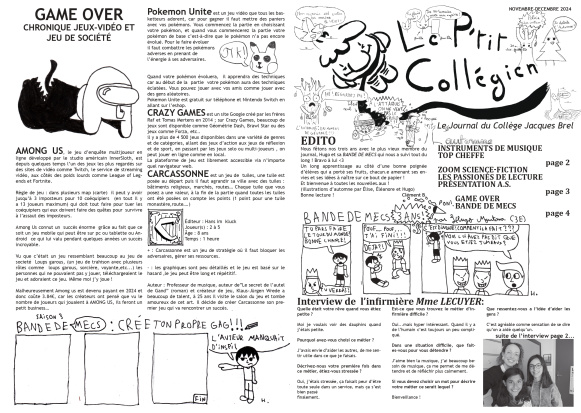 GAME OVER
CHRONIQUE JEUX-VIDÉO ET
JEU DE SOCIÉTÉ
AMONG US, le jeu d'enquête multijoueur en
ligne développé par le studio américain InnerSloth, est
depuis quelques temps l'un des jeux les plus regardés sur
les sites de vidéo comme Twitch, le service de streaming
vidéo, aux côtés des poids lourds comme League of Leg-
ends et Fortnite.
Règle de jeu : dans plusieurs map (carte). Il peut y avoir
jusqu'à 3 imposteurs pour 10 coéquipiers
à 13 joueurs maximum) qui doit tout faire pour tuer les
coéquipiers qui eux doivent faire des quêtes pour survivre
à l'assaut des imposteurs.
Among Us connut un succès énorme grâce au fait que ce
soit un jeu mobile qui peut être sur pc ou tablette ou An-
droid ce qui lui valu pendant quelques années un succès
incroyable.
Vu que c'était un jeu ressemblant beaucoup au jeu de
société Loups garous, (un jeu de trahison avec plusieurs
rôles comme loups garous, sorcière, voyante,etc...) les
personnes qui ne pouvaient pas y jouer, téléchargeaient le
jeu et adoraient ce jeu. Même moi j'y joue !
Malheureusement Among us est devenu payant en 2024 et
donc coûte 3.84€, car les créateurs ont pensé que vu le
nombre de joueurs qui jouaient à AMONG US, ils feront un
petit business...
Pokemon Unite est un jeu vidéo que tous les bas-
ketteurs adorent, car pour gagner il faut mettre des paniers
avec vos pokémons. Vous commencez la partie en choisissant
votre pokémon, et quand vous commencerez la partie votre
pokémon de base c'est-à-dire que le pokémon n'a pas encore
évolué. Pour le faire évoluer
il faut combattre les pokémons
adverses en prenant de
l'énergie à ses adversaires.
Quand votre pokémon évoluera, il apprendra des techniques
car au début de la partie votre pokémon aura des techniques
éclatées. Vous pouvez jouer avec vos amis comme jouer avec
des gens aléatoires.
Pokemon Unite est gratuit sur téléphone et Nintendo Switch en
allant sur l'eshop.
CRAZY GAMES est un site Google créé par les frères
Raf et Tomas Mertens en 2014 ; sur Crazy Games, beaucoup de
jeux sont disponible comme Geometrie Dash, Brawl Star ou des
jeux comme Forza, etc..
Il y a plus de 4 500 jeux disponibles dans une variété de genres
et de catégories, allant des jeux d'action aux jeux de réflexion
et de sport, en passant par les jeux solo ou multi-joueurs , on
peut jouer en ligne comme en local.
La plateforme de jeu est librement accessible via n'importe
quel navigateur web.
CARCASSONNE est un jeu de tuiles, une tuile est
posée au départ puis il faut agrandir sa ville avec des tuiles :
bâtiments religieux, marchés, routes... Chaque tuile que vous
posez a une valeur, à la fin de la partie quand toutes les tuiles
ont été posées on compte les points (1 point pour une tuile
monastère par exemple).
Éditeur : Hans im Gluck
Joueur(s) : 2 à 5
Âge : 8 ans
Temps : 1 heure
+ : Carcassonne est un jeu de stratégie où il faut bloquer les
adversaires, gérer ses ressources.
- : les graphiques sont peu détaillés et le jeu est basé sur le
hasard ,le jeu peut être long et répétitif.
Auteur : Professeur de musique, auteur de "Le secret de l'autel
de Gand" (roman) et créateur de jeu, Klaus-Jürgen Wrede a
beaucoup de talent, à 25 ans il visite le salon du jeu et tombe
amoureux de cet art. Il décide de créer Carcassonne son pre-
mier jeu qui va rencontrer un succès.
SAISON 3
BANDE DE MECS : CRÉE TON PROPRE GAG !!!
L'AUTEUR MANQUAIT
D'INSPI
FIN
H.
NOVEMBRE-DECEMBRE 2024
Le P'tit
Collégien
Le Journal du Collège Jacques Brel
EDITO
Nous fêtons nos trois ans avec le plus vieux membre du
journal, Hugo et sa BANDE DE MECS qui nous a suivi tout du
long ! Bravo à lui <3
Un long apprentissage au côté d'une bonne poignée
d'élèves qui a porté ses fruits, chacun a amené ses en-
vies et ses idées à naître sur ce bout de papier !
Et bienvenue à toutes les nouvelles aux !
Illustrations d'automne par Elise, Eléanore et Hugo
Bonne lecture !
Clément B.
INSTRUMENTS DE MUSIQUE
TOP CHEFFE
page 2
ZOOM SCIENCE-FICTION
LES PASSIONÉS DE LECTURE
PRÉSENTATION A.S.
page 3
GAME OVER
BANDE DE MECS
page 4
BANDE DE MECS : 3 ANS
Interview de l'infirmière Mme LECUYER:
Quelle était votre rêve quand vous étiez
petite ?
Moi je voulais voir des dauphins quand
j'étais petite.
Pourquoi avez-vous choisi ce métier ?
J'avais envie d'aider les autres, de me sen-
tir utile dans ce que je faisais.
Décrivez-nous votre première fois dans
ce métier, étiez-vous stressée ?
Oui, j'étais stressée, ça faisait peur d'être
toute seule dans un service, mais ça s'est
bien passé
finalement.
Est-ce que vous trouvez le métier d'in-
firmière dur ?
Oui... mais hyper intéressant. Quand il y a
de l'humain c'est toujours un peu compli-
qué.
Dans une situation difficile, que fait-
es-vous pour vous détendre ?
J'aime bien la musique, j'ai beaucoup be-
soin de musique, ça me permet de me dé-
tendre et de réfléchir plus calmement.
Si vous deviez choisir un mot pour décrire
votre métier ce serait lequel ?
Bienveillance !
Que ressentez-vous a l'idée d'aider les
gens ?
C'est agréable comme sensation de se dire
qu'on a aidé quelqu'un.
suite de l'interview page 2...